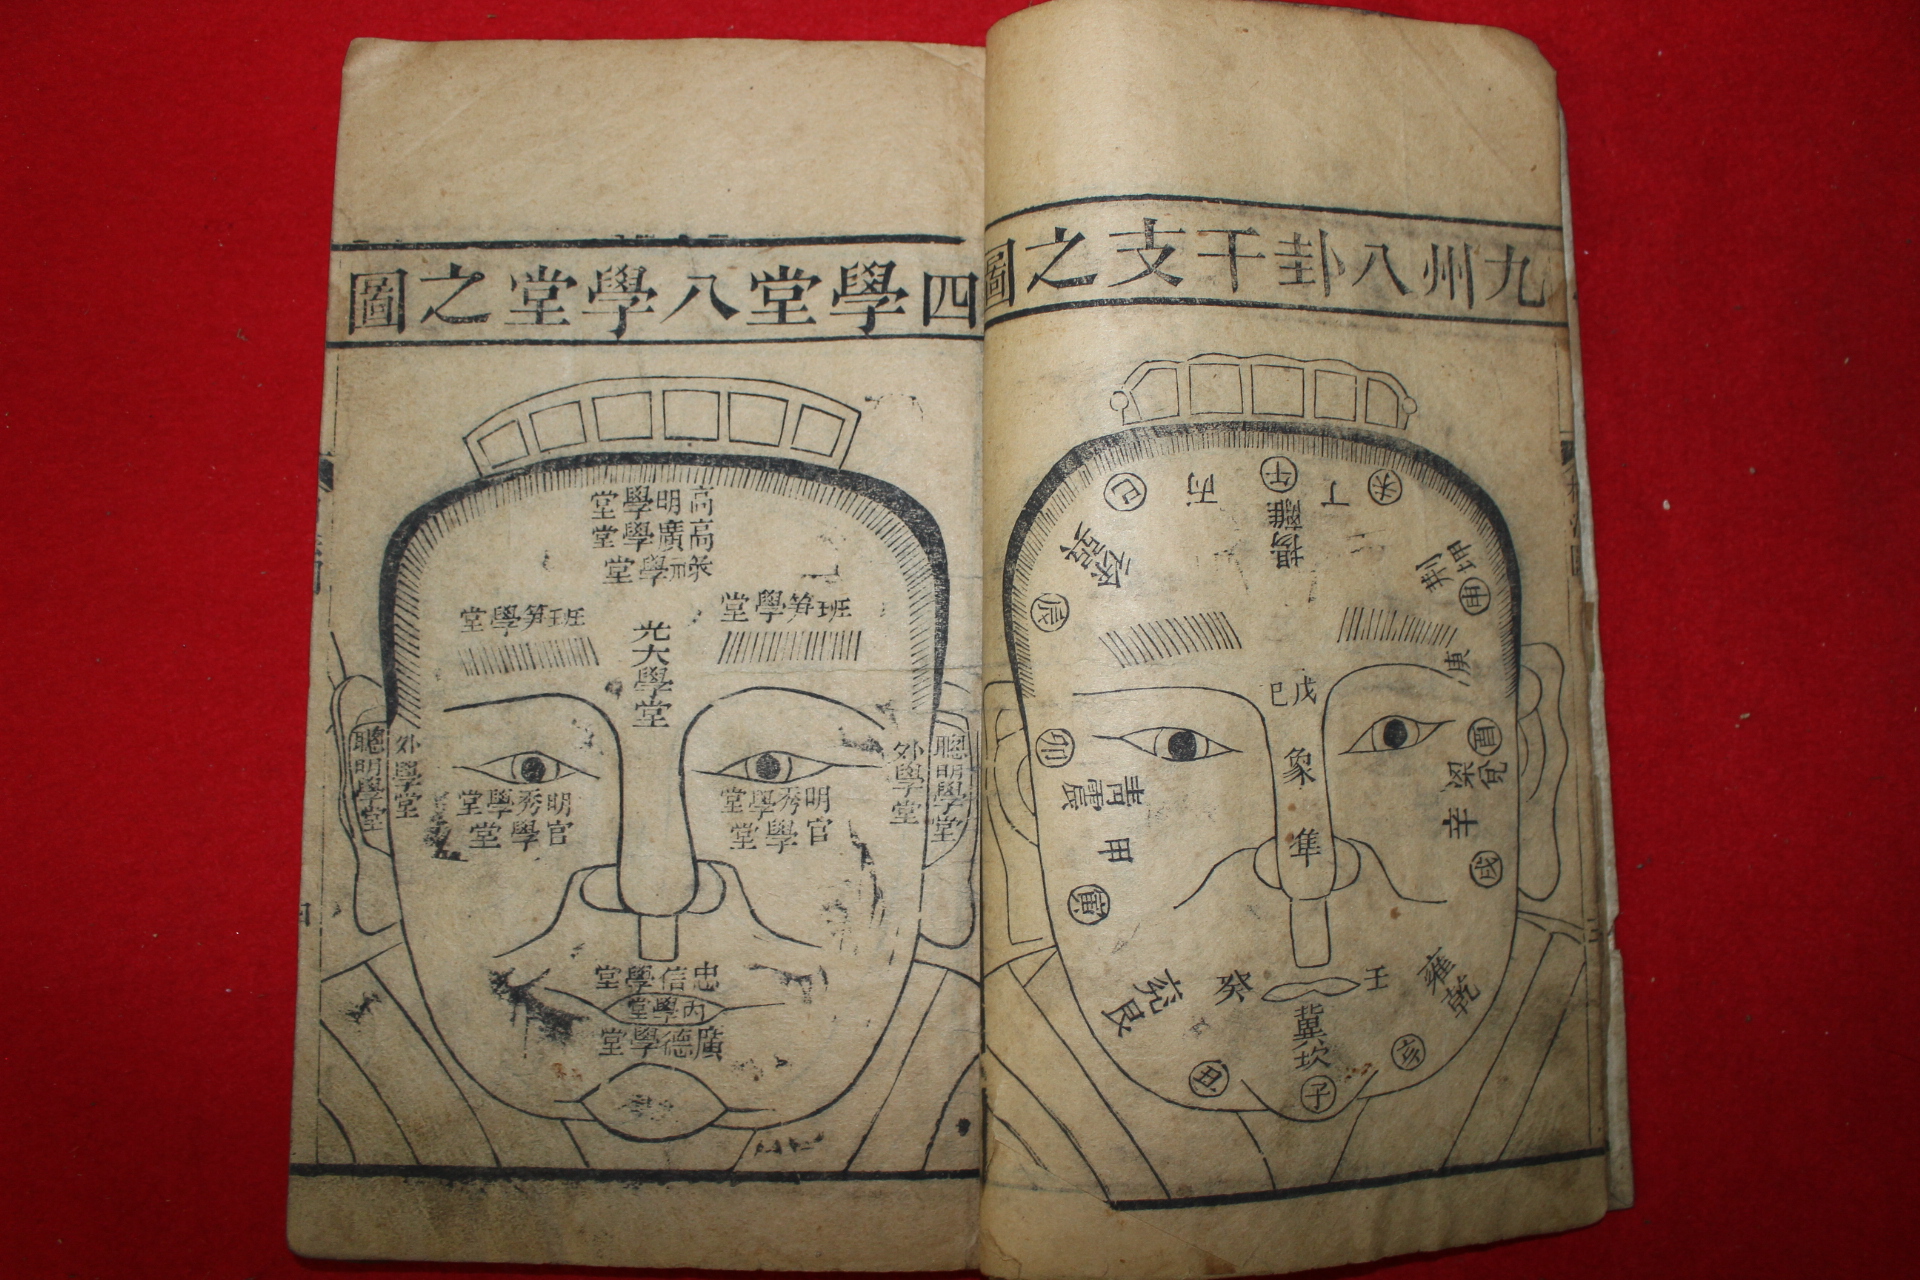 九州八卦干支之圖
巳
丙
午
丁
未
離
揚
巽
徐
坤
荊
申
辰
庚
戊
己
卯
酉
震
青
兌
梁
象
甲
辛
隼
寅
戌
艮
兗
癸
壬
雍
乾
冀
坎
丑
子
亥
四學堂八學堂之圖
高明學堂
高廣學堂
學堂
班笋學堂
班笋學堂
光大學堂
聰明學堂
外學堂
外學堂
聰明學堂
明秀學堂
官學堂
明秀學堂
官學堂
忠信學堂
內學堂
廣德學堂